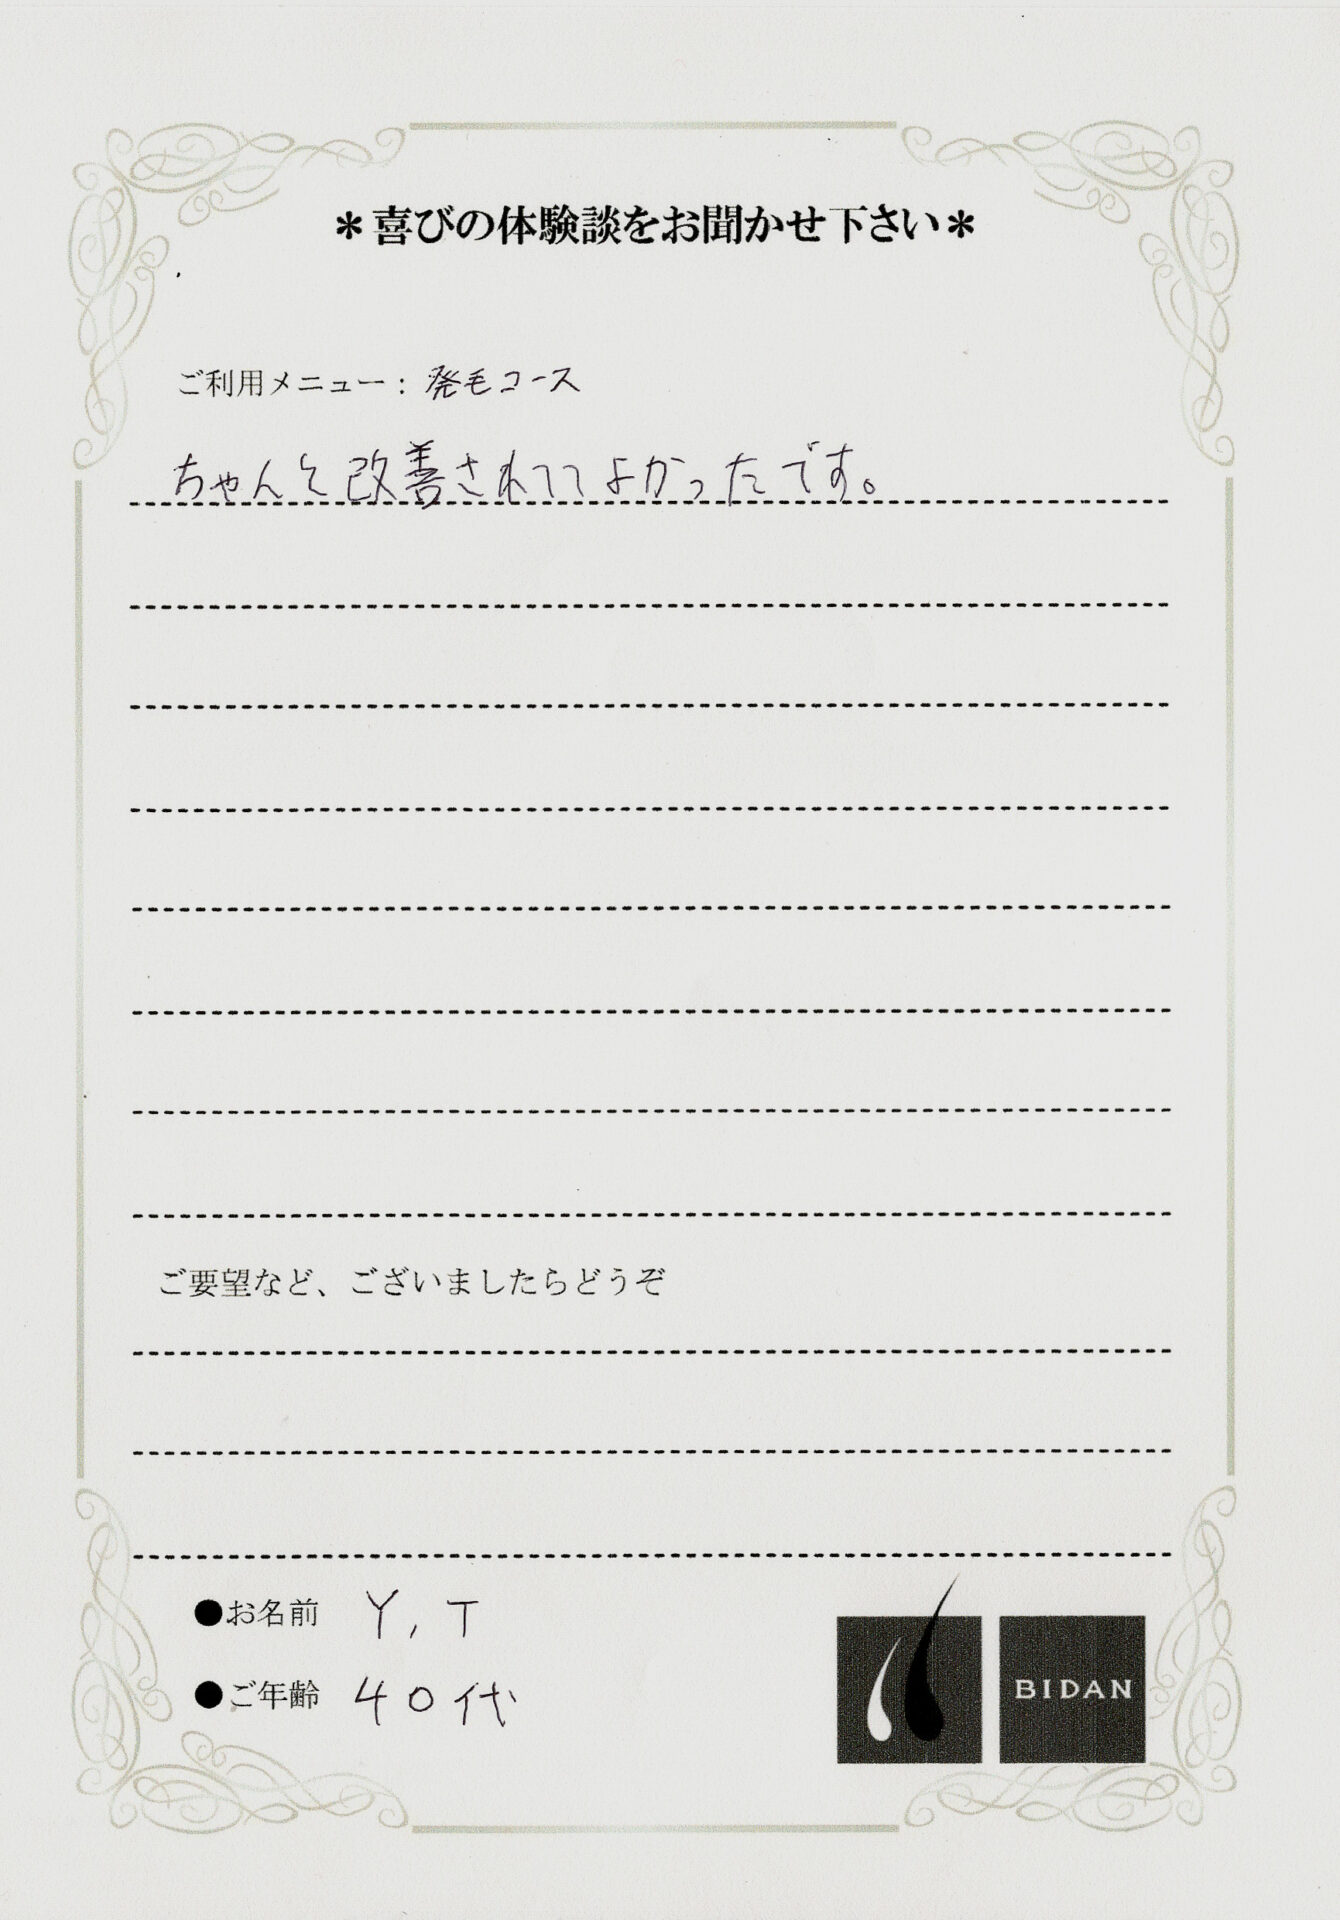 ＊喜びの体験談をお聞かせ下さい＊
ご利用メニュー：発毛コース
ちゃんと改善されててよかったです。
ご要望など、ございましたらどうぞ
●お名前 Y,T
●ご年齢 40代
BIDAN